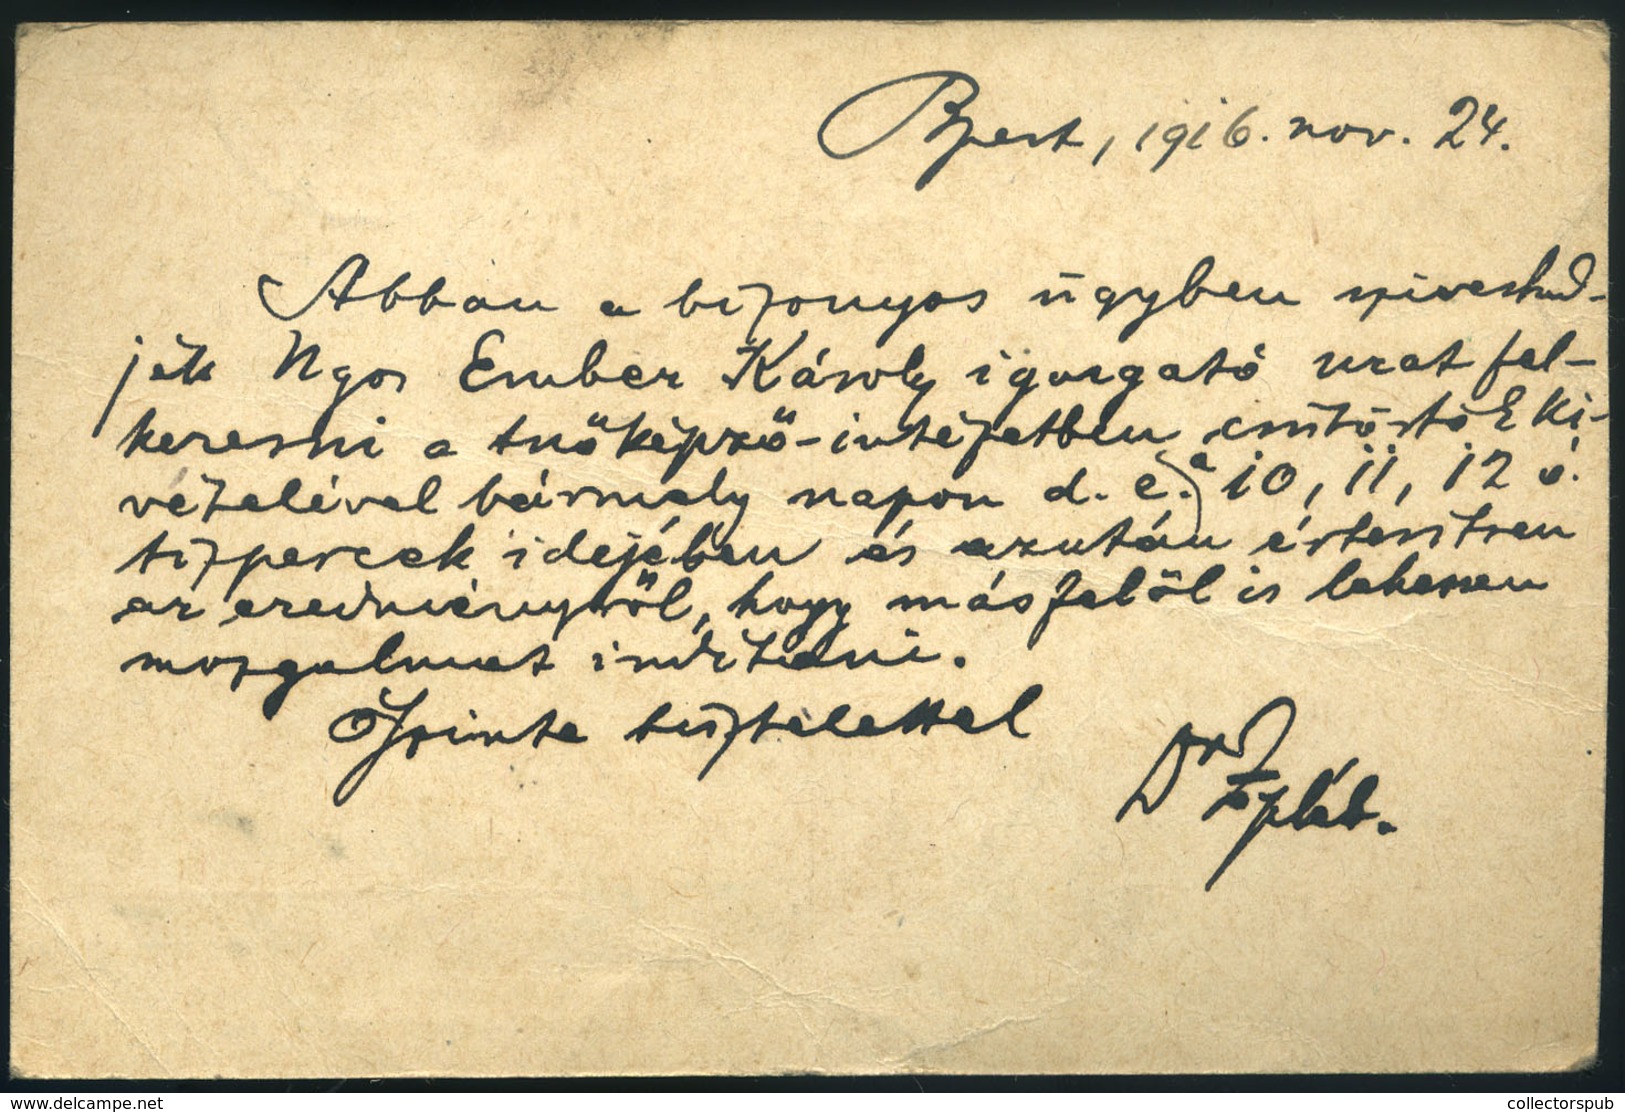 Bpest, 1916. nov. 24.
Abban a bizonyos ügyben szivesked-
jék Ngos Ember Károly igazgató urat fel-
keresni a tnőképző-intézetben csütörtök ki-
vételével bármely napon d. e. a 10, 11, 12 ó.
tizpercek idejében és azután értesítsen
az eredményről, hogy másfelöl is lehessen
mozgalmat indítani.
Őszinte tisztelettel
Dr
www.delcampe.net
collectorspub